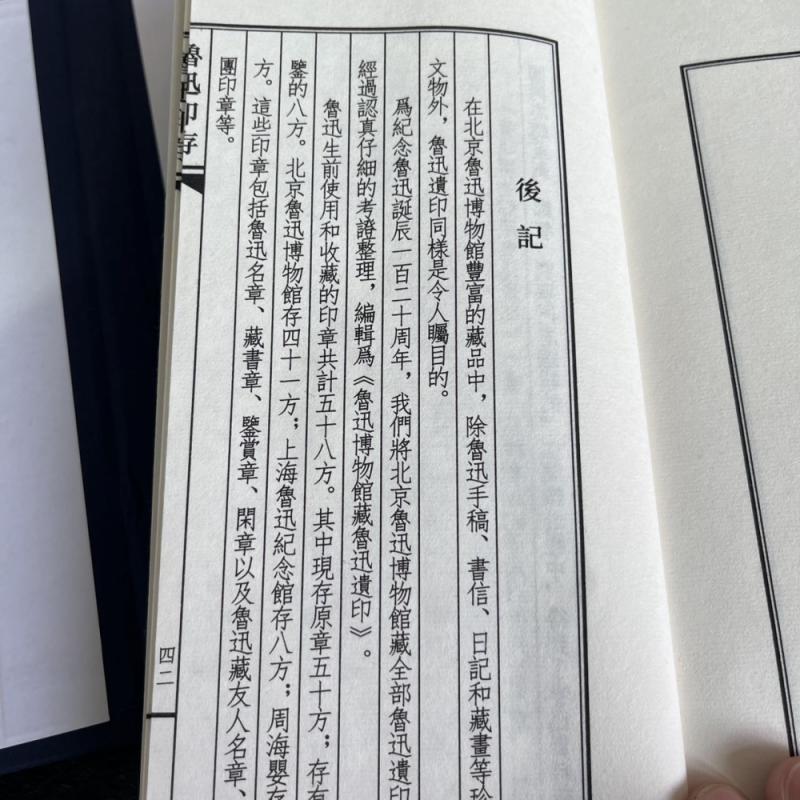 後記
在北京魯迅博物館豐富的藏品中，除魯迅手稿、書信、日記和藏畫等珍
文物外，魯迅遺印同樣是令人矚目的。
爲紀念魯迅誕辰一百二十周年，我們將北京魯迅博物館藏全部魯迅遺印
經過認真仔細的考證整理，編輯爲《魯迅博物館藏魯迅遺印》。
魯迅生前使用和收藏的印章共計五十八方。其中現存原章五十方；存有
鑒的八方。北京魯迅博物館存四十一方；上海魯迅紀念館存八方；周海嬰存
方。這些印章包括魯迅名章、藏書章、鑒賞章、閑章以及魯迅藏友人名章、
團印章等。
魯迅印存
四二